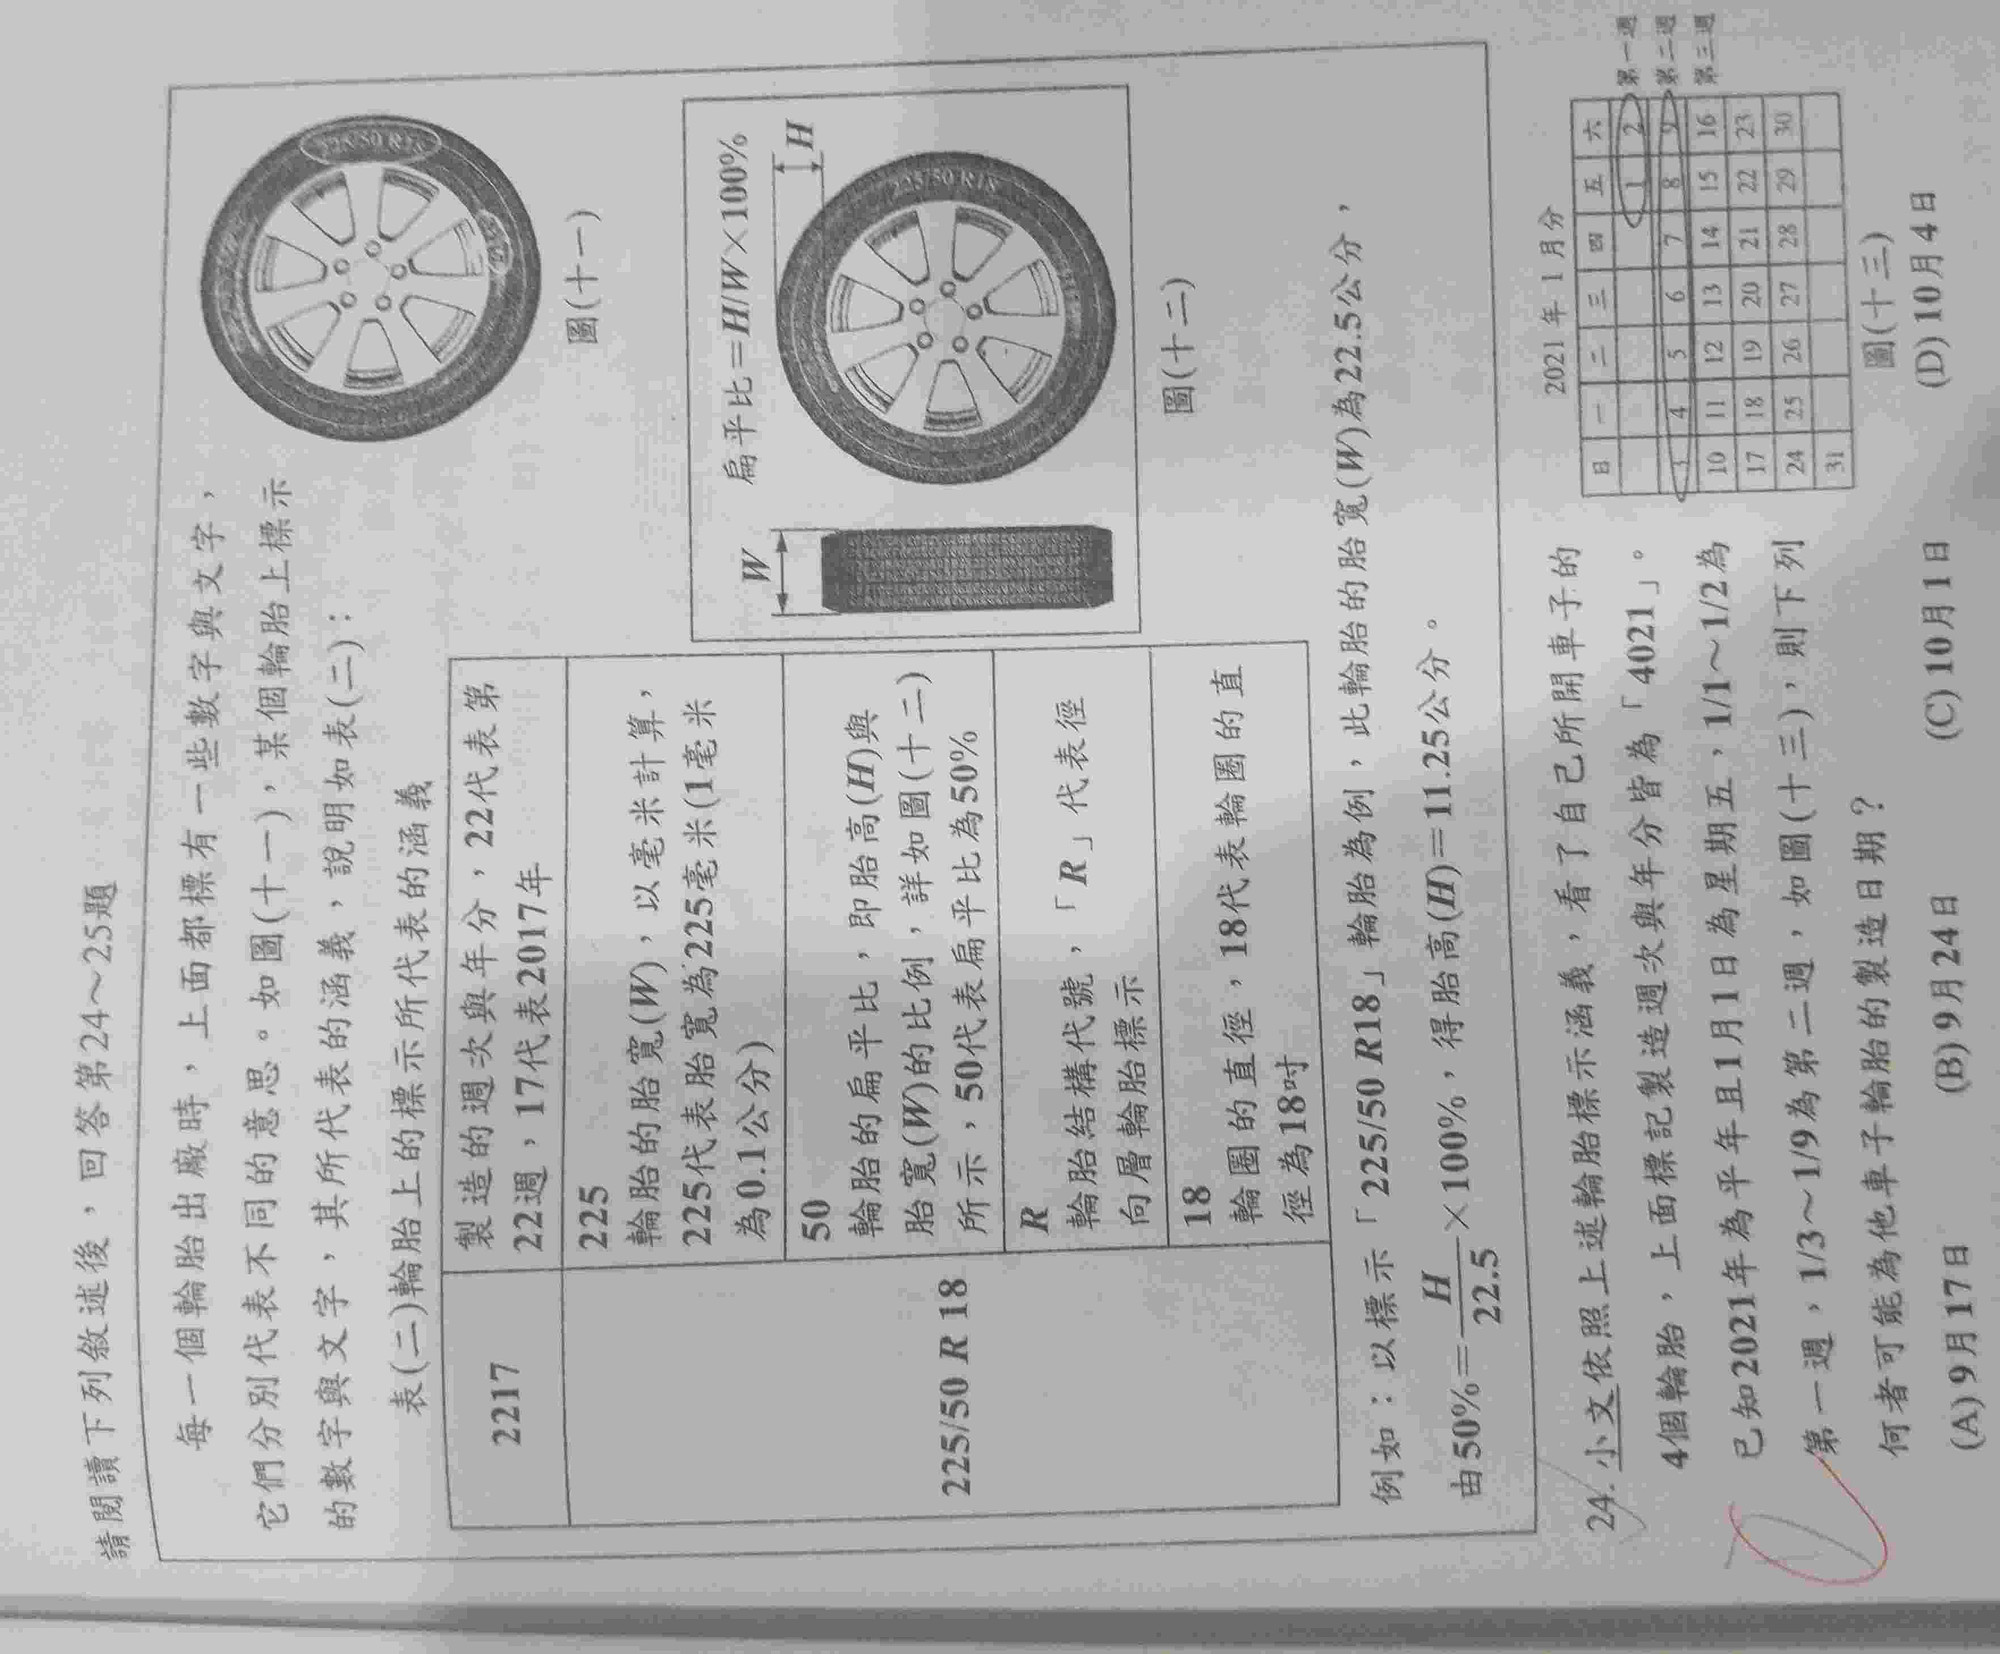 請閱讀下列敘述後，回答第24～25題
每一個輪胎出廠時，上面都標有一些數字與文字，
它們分別代表不同的意思。如圖(十一)，某個輪胎上標示
的數字與文字，其所代表的涵義，說明如表(二)：
225/50 R18
圖(十一)
表(二)輪胎上的標示所代表的涵義
2217
製造的週次與年分，22代表第
22週，17代表2017年
225/50 R 18
225
輪胎的胎寬(W)，以毫米計算，
225代表胎寬為225毫米(1毫米
為0.1公分)
50
輪胎的扁平比，即胎高(H)與
胎寬(W)的比例，詳如圖(十二)
所示，50代表扁平比為50%
R
輪胎結構代號，「R」代表徑
向層輪胎標示
18
輪圈的直徑，18代表輪圈的直
徑為18吋
扁平比=H/W×100%
W
H
225/50 R18
圖(十二)
例如：以標示「225/50 R18」輪胎為例，此輪胎的胎寬(W)為22.5公分，
由50%=H/22.5×100%，得胎高(H)=11.25公分。
24. 小文依照上述輪胎標示涵義，看了自己所開車子的
4個輪胎，上面標記製造週次與年分皆為「4021」。
已知2021年為平年且1月1日為星期五，1/1～1/2為
第一週，1/3～1/9為第二週，如圖(十三)，則下列
何者可能為他車子輪胎的製造日期？
(A) 9月17日 (B) 9月24日 (C) 10月1日 (D) 10月4日
2021年1月分
日 一 二 三 四 五 六
1 2 第一週
3 4 5 6 7 8 9 第二週
10 11 12 13 14 15 16 第三週
17 18 19 20 21 22 23
24 25 26 27 28 29 30
31
圖(十三)